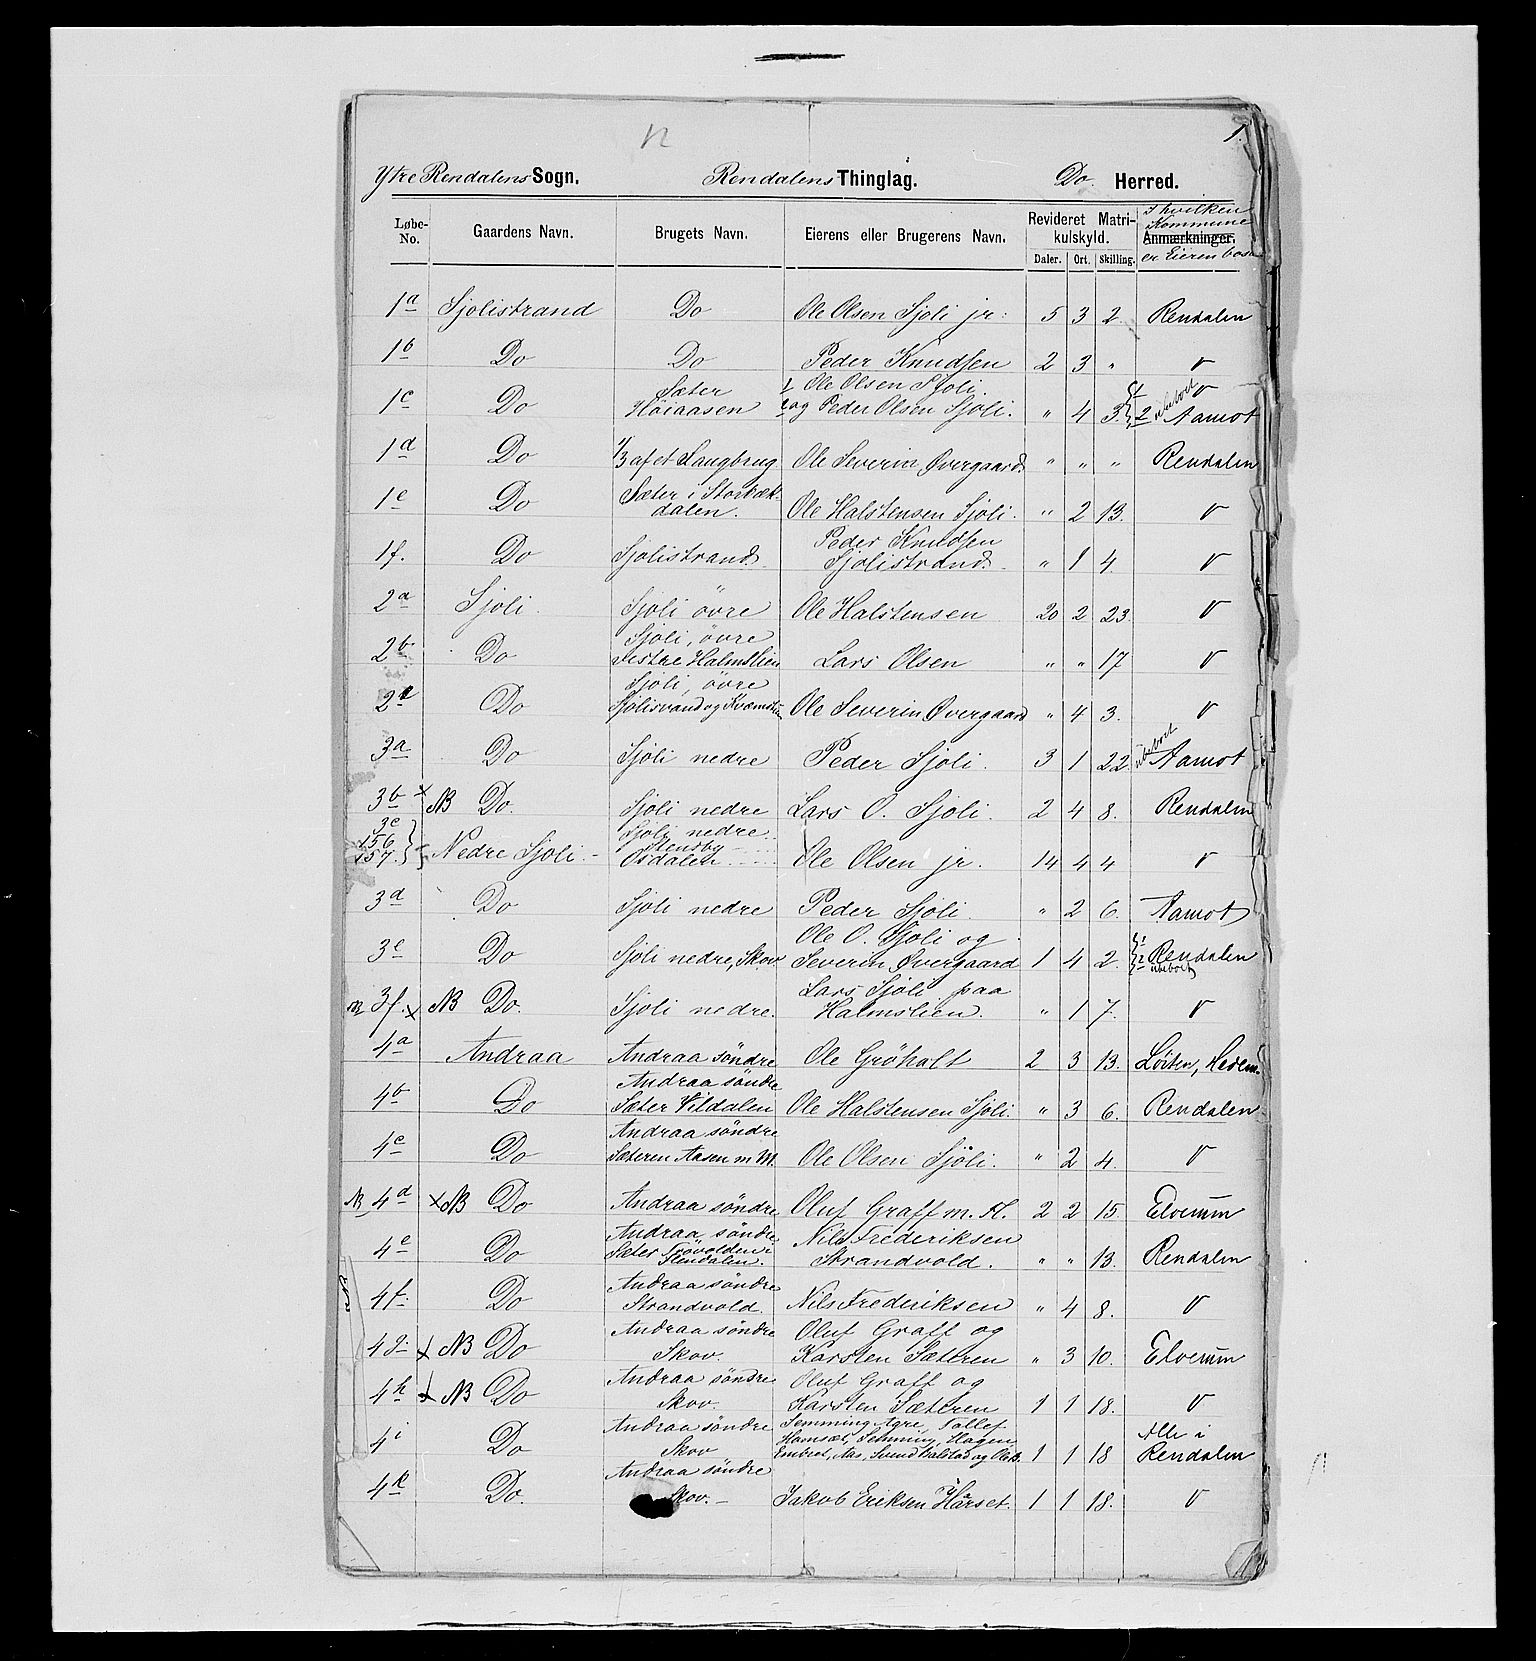 1.
Ytre Rendalens Sogn. Rendalens Thinglag. Do. Herred.
Løbe-No. Gaardens Navn. Brugets Navn. Eierens eller Brugerens Navn. Revideret Matrikulskyld. Daler. Ort. Skilling. Anmærkninger. I hvilken Kommune er Eieren bosat
1a Sjolistrand Do Ole Olsen Sjoli jr: 5 3 2. Rendalen
1b Do Do Peder Knudsen 2 3 " V
1c Do Sæter Høiaasen 1/ Ole Olsen Sjoli. 2 og Peder Olsen Sjoli. " 4 3. V 2 ubeboet Aamot
1d Do 1/3 af et Saugbrug Ole Severin Øvergaard. " " " Rendalen
1e Do Sæter i Storbækdalen. Ole Halstensen Sjöli. " 2 13. V
1f. Do Sjolistrand. Peder Knudsen Sjolistrand. " 1 4. V
2a Sjoli. Sjoli övre Ole Halstensen 20 2 23 V
2b Do Sjoli, övre Vestre Halmslien Lars Olsen " " 17 V
2c Do Sjoli, övre Sjolisvand og Kvæmslien Ole Severin Øvergaard " 4 3. V
3a Do Sjoli nedre Peder Sjoli. 3 1 22 ubeboet Aamot
3b x NB Do. Sjoli nedre Lars O. Sjoli. 2 4 8. Rendalen
3c 156 157 } Nedre Sjoli. Sjoli nedre Stensby Osdalen Ole Olsen jr. 14 4 4 V
3d Do Sjoli nedre Peder Sjoli. " 2 6. Aamot
3e Do Sjoli nedre, Skov Ole O. Sjoli og Severin Øvergaard 1 4 2. Rendalen ubeboet
NB 3f. x NB Do. Sjoli nedre. Lars Sjoli paa Halmslien. " 1 7. V
4a Andraa Andraa söndre Ole Gröholt 2 3 13. Löiten, Hedem.
4b Do Andraa söndre Sæter Vildalen Ole Halstensen Sjöli. " 3 6. Rendalen
4c Do Andraa söndre Sæteren Aasen m M. Ole Olsen Sjöli. " 2 4. V
NB 4d x NB Do Andraa söndre Oluf Graff m. Fl. 2 2 15 Elverum
4e Do Andraa söndre Sæter i Flendalen. Nils Frederiksen Strandvold. " " 13. Rendalen
4f. Do Andraa söndre Strandvold. Nils Frederiksen " 4 8. V
4g x NB Do Andraa söndre Skov. Oluf Graff og Karsten Sæteren " 3 10. Elverum
4h x NB Do Andraa söndre Skov. Oluf Graff og Karsten Sæteren 1 1 18. V
4i Do Andraa söndre Skov Semming Agre, Tollef Hornset, Semming Hagen, Embret Aas, Svend Balstad og Ole B. 1 1 18 Alle i Rendalen
4k Do. Andraa söndre Skov. Jakob Eriksen Harset. 1 1 18. V